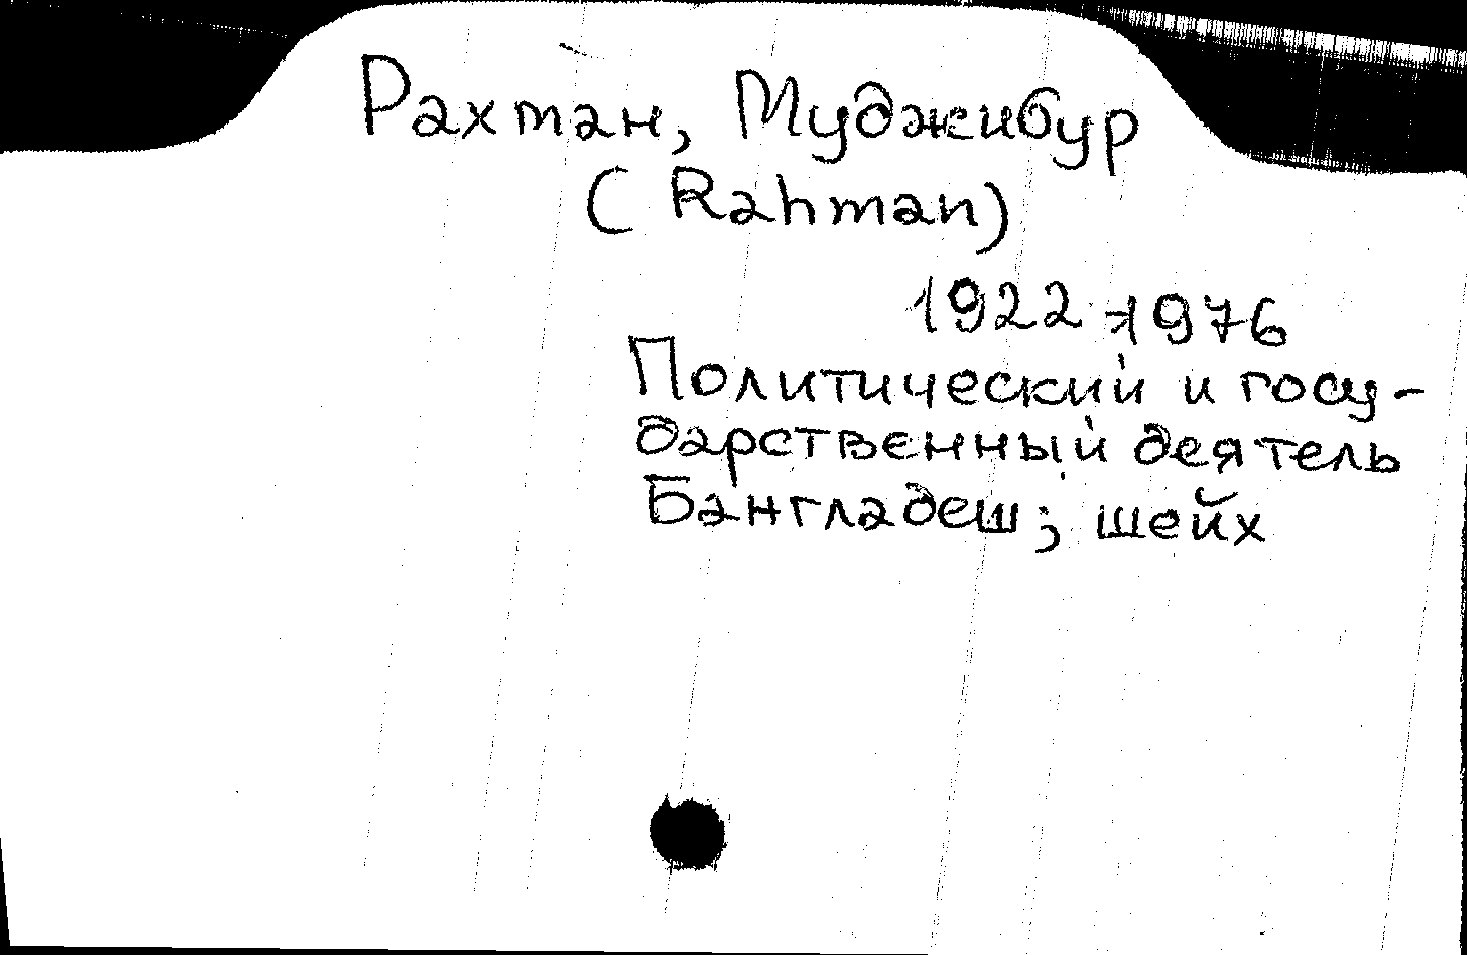 Рахман, Муджибур
(Rahman)
1922-1976
Политический и госу-
дарственный деятель
Бангладеш; шейх